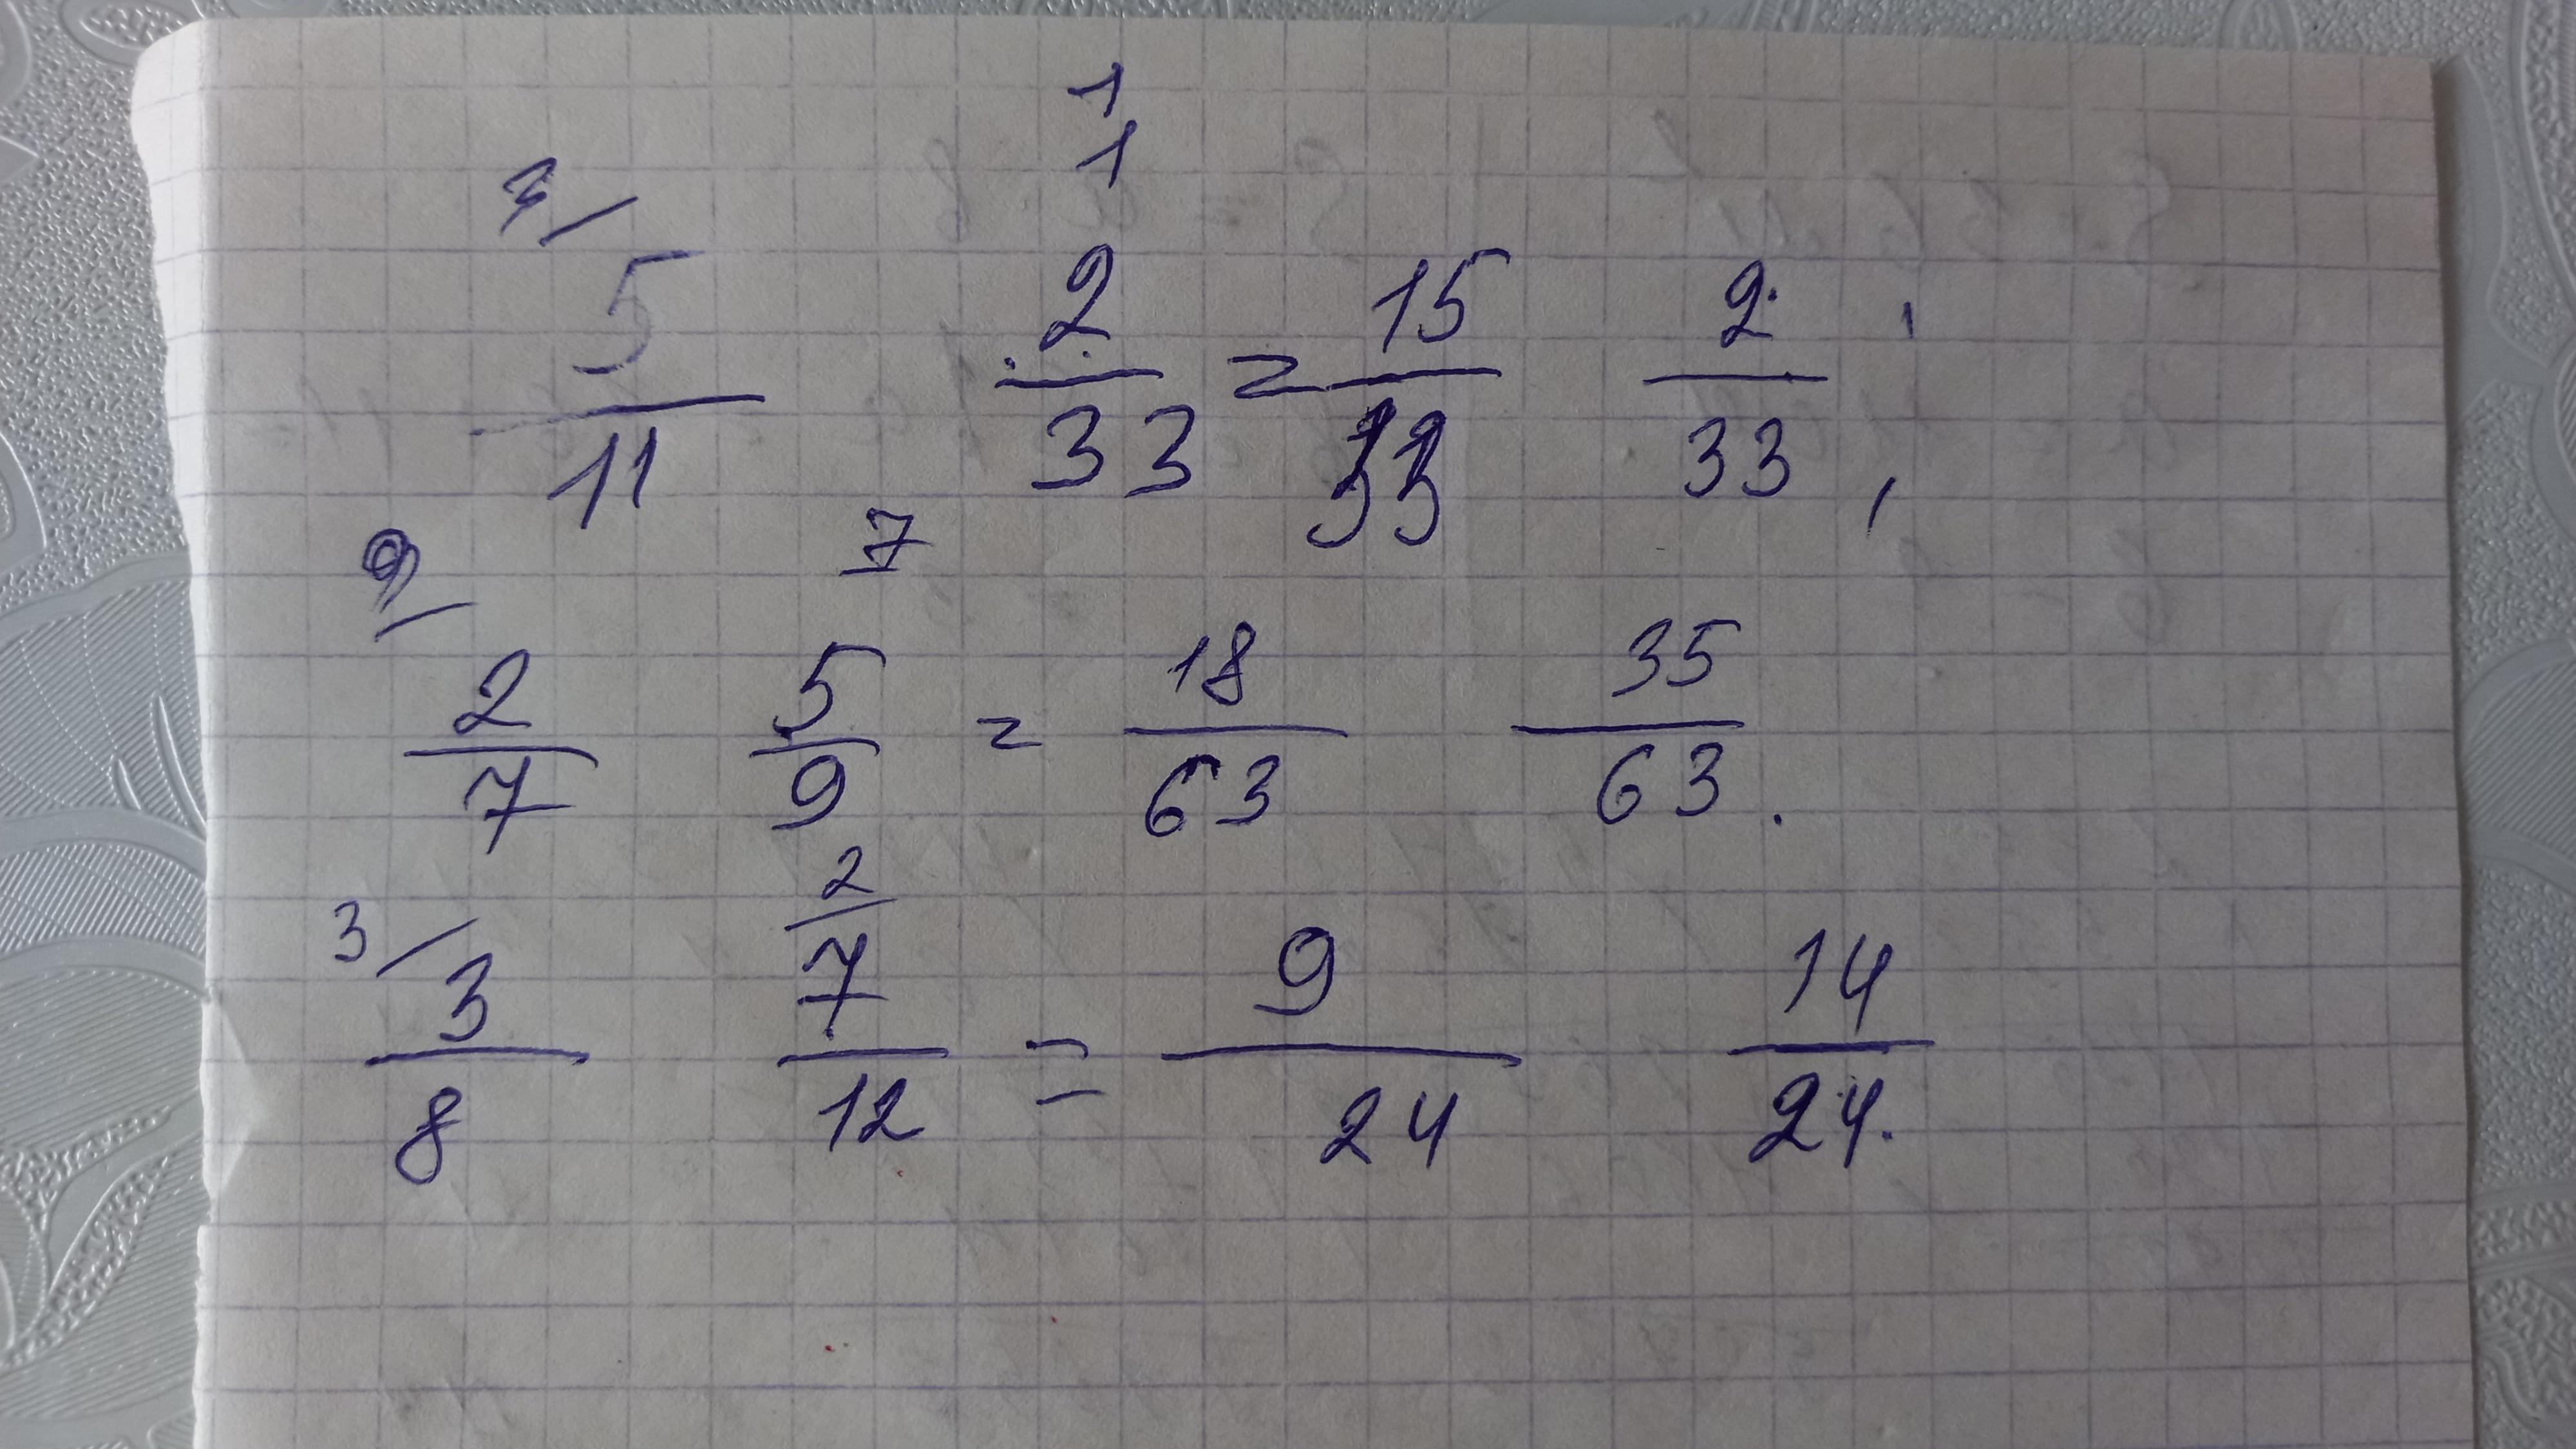 1
3/ 1
5/11 2/33 = 15/33 2/33 ,
9 7
2/7 5/9 = 18/63 35/63 .
3/ 2
3/8 7/12 = 9/24 14/24.